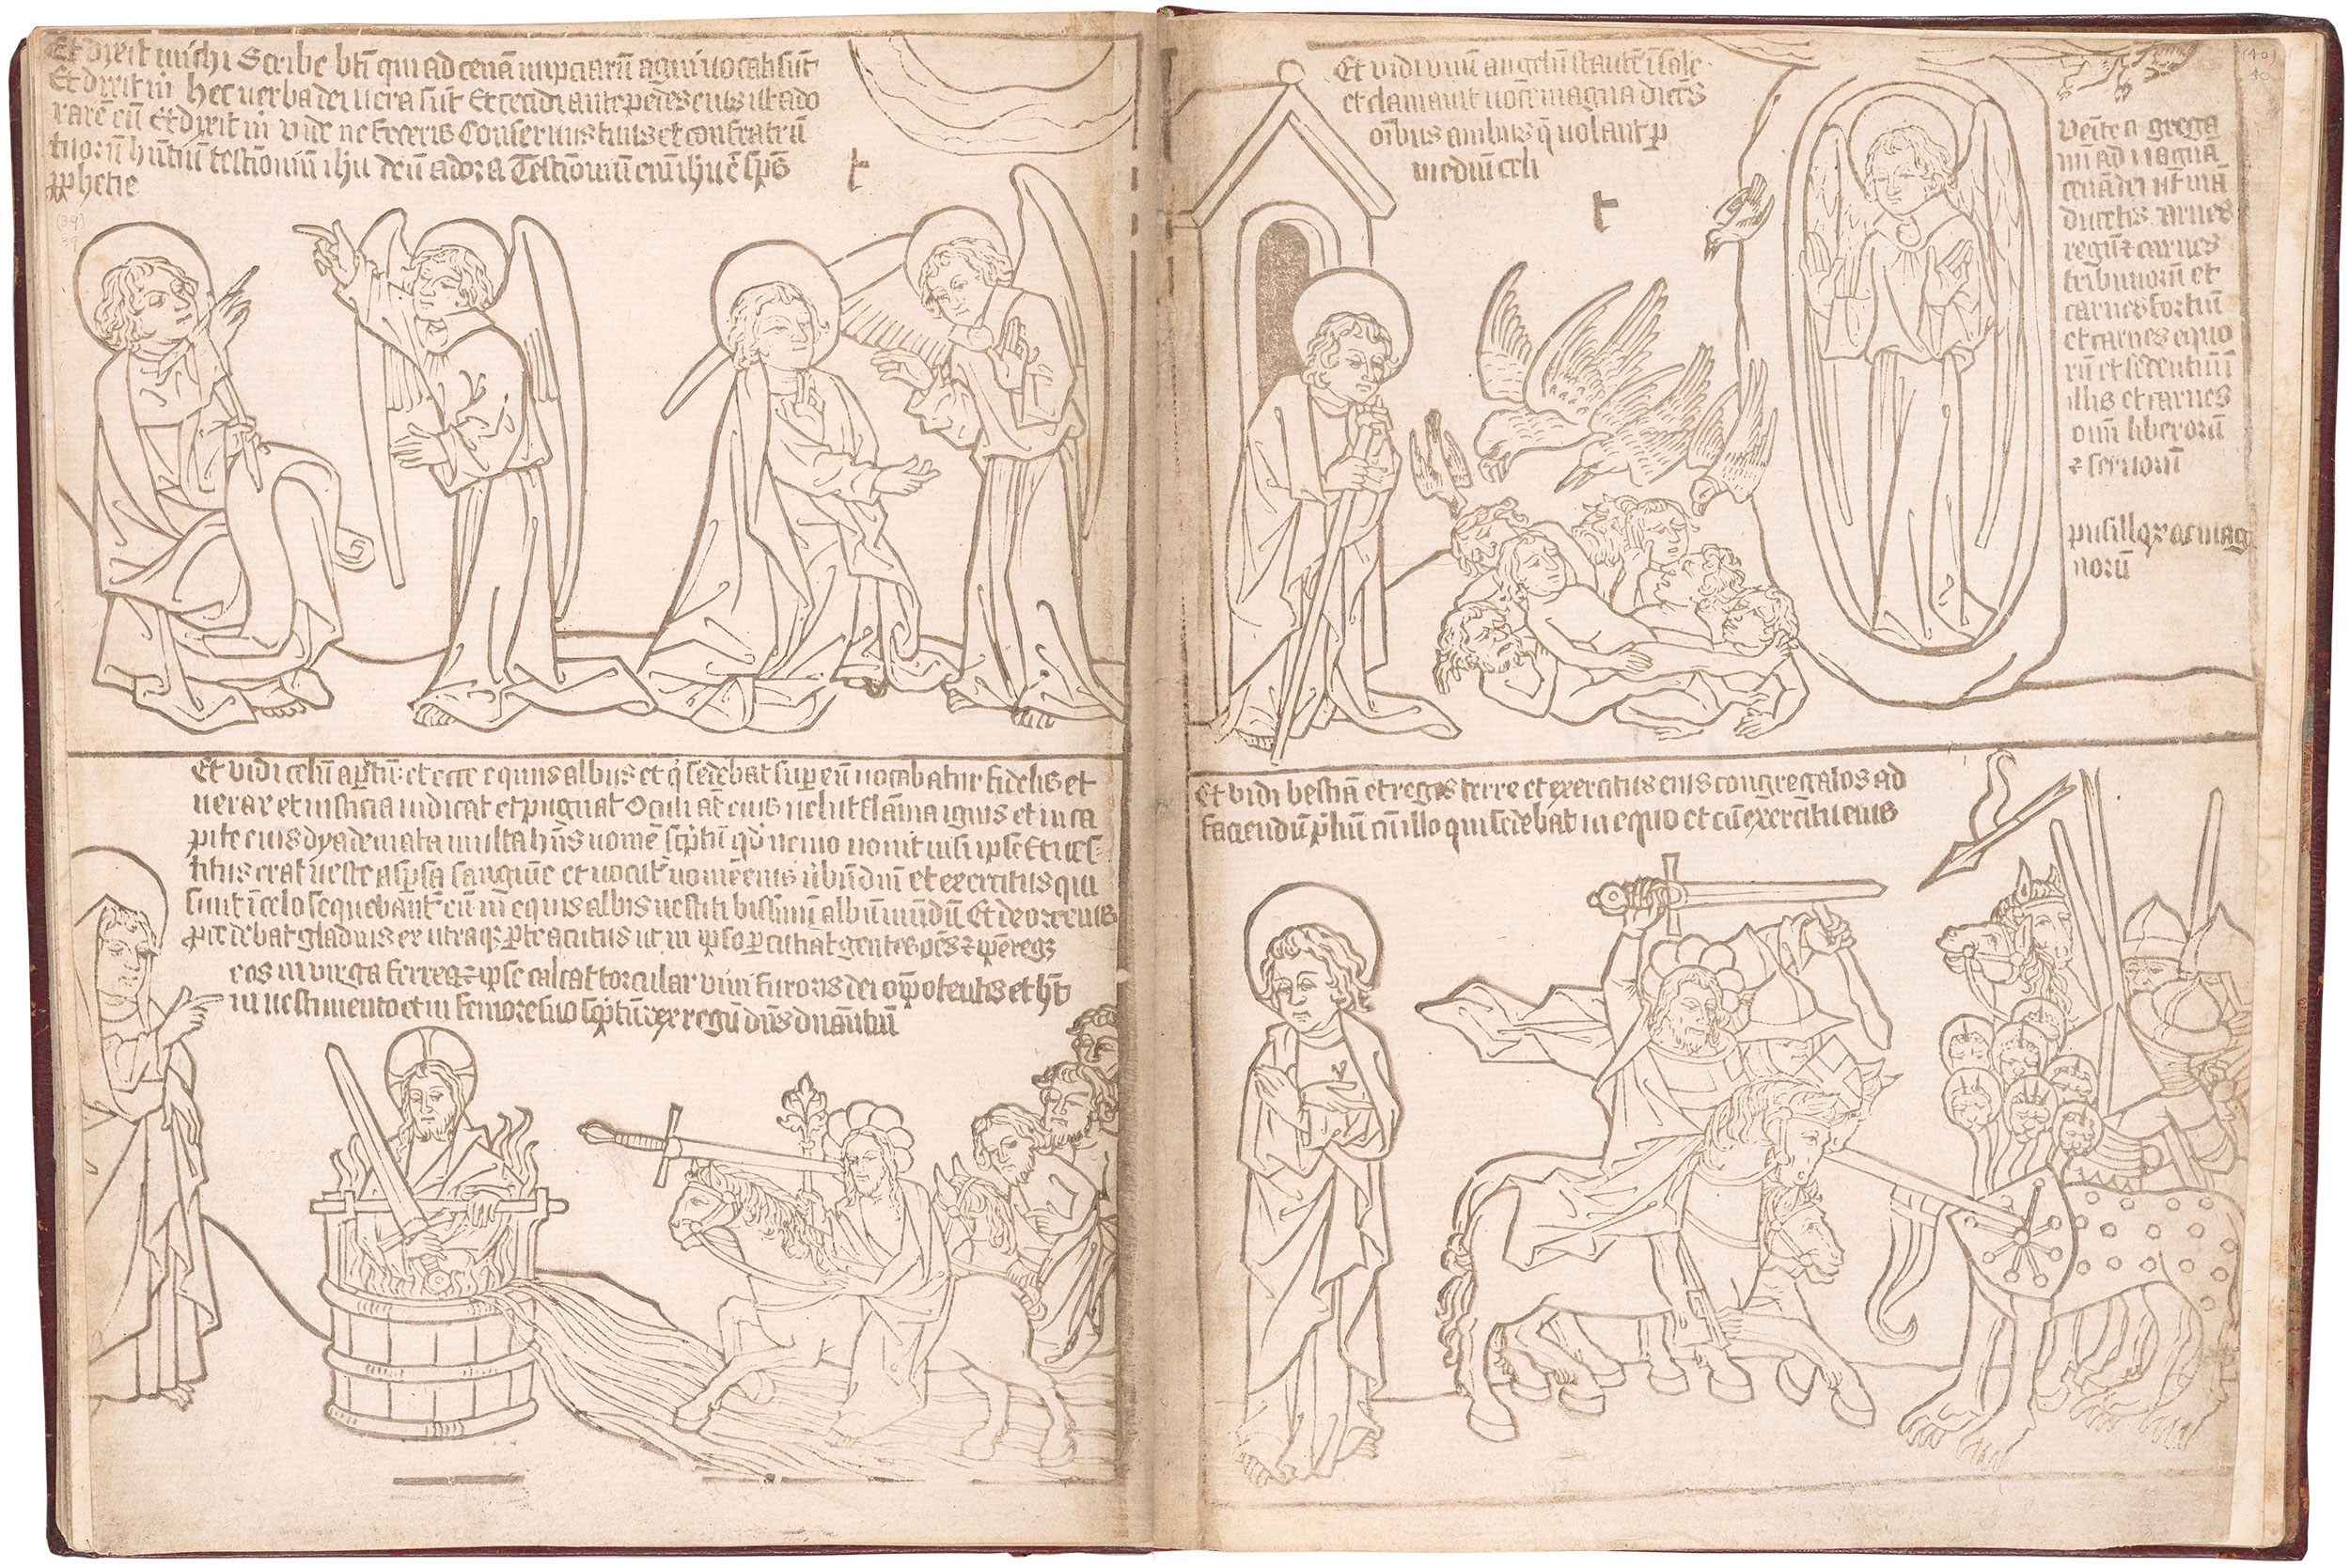 Et dixit michi Scribe bt̄i qui ad cenā nupciarū agni uocati sūt
Et dixit m̄ hec uerba dei uera sūt Et cecidi ante pedes eius ut ado
rarē eū Et dixit m̄ vide ne feceris Conseruus tuus et confratrū
tuorū hñtiū testīoniū ihu deū adora Testīoniū eni ihu ē sp̄s
ꝓphetie
t
(39)
39
Et vidi celū aꝑtū: et ecce equus albus et q̇ sedebat suꝑ eū uocabatur fidelis et
uerax et iusticia iudicat et pugnat Oculi at̄ eius uelut flāma ignis et in ca
pite eius dyademata multa hn̄s nomē scͥptū qd̄ nemo nouit nisi ipse Et ues-
titus erat ueste aspsā sanguīe et uocat᷑ nomē eius ūbū dni Et exercitus qui
sunt ī celo sequebant᷑ eū in equis albis uestiti bissinū albū mūdū Et de ore eius
ꝓcedebat gladius ex utraqꝫ ꝑte acutus ut in ipso ꝑcutiāt gentes oēs ⁊ ip̄e regꝫ
eos in virga ferrea ⁊ ip̄se calcat torcular vini furoris dei oīpotentis et hꝫ
in uestimento et in femore suo scͥptū rex regū dn̄s dnāntiū
Et vidi vnū angelū stantē ī sole
et clamauit uoce magna dicēs
oībus auibus q̄ uolant ꝑ
mediū celi
t
(40)
40
Ueīte ⁊ grega
mī ad magnā
cenā dei ut mā
ducetis carnes
regū ⁊ carnes
tribunorū et
carnes fortiū
et carnes equo
rū et sedentiū ī
illis et carnes
oim liberorū
⁊ seruorū
pusillorꝫ ac mag
norū
Et vidi bestiā et reges terre et exercitus eius congregatos ad
faciendū p̄liū cū illo qui sedebat in equo et cū exercitu eius